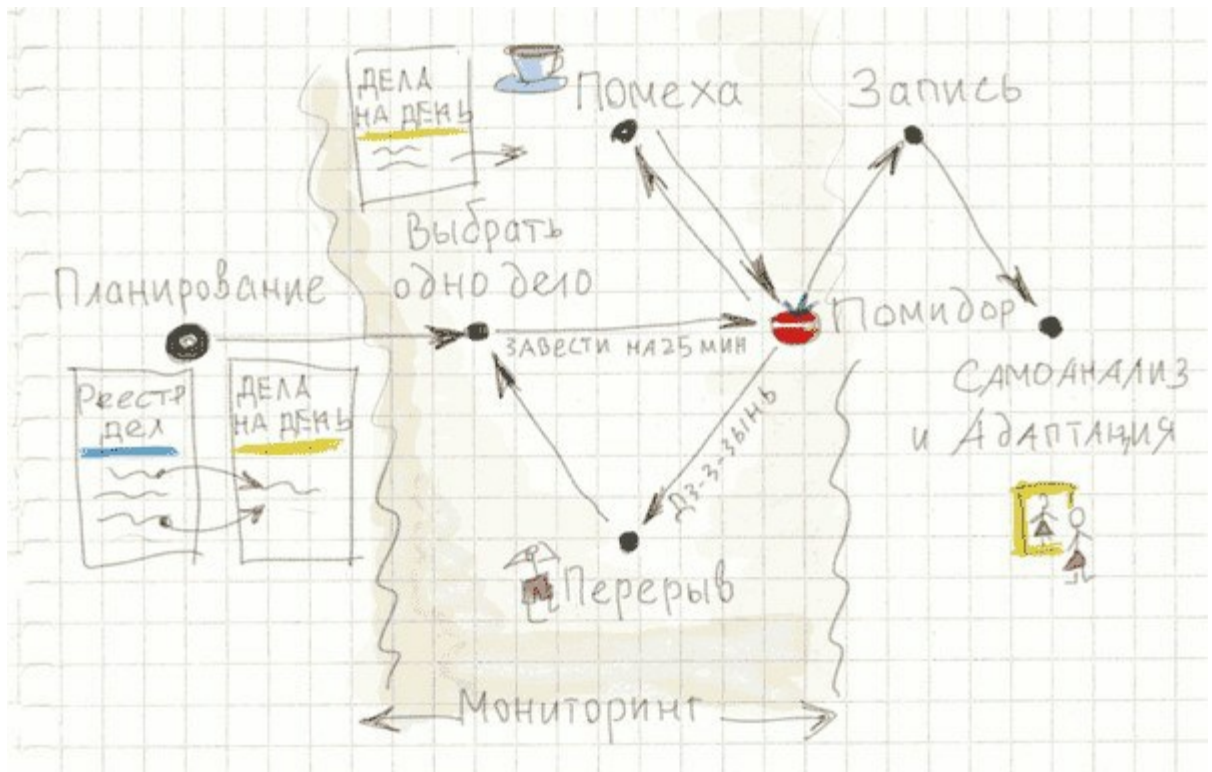 ДЕЛА
НА ДЕНЬ
Помеха
Запись
Выбрать
одно дело
Планирование
ЗАВЕСТИ НА 25 МИН
Помидор
Реестр
дел
ДЕЛА
НА ДЕНЬ
ДЗ-З-ЗЫНЬ
САМОАНАЛИЗ
и АДАПТАЦИЯ
Перерыв
Мониторинг